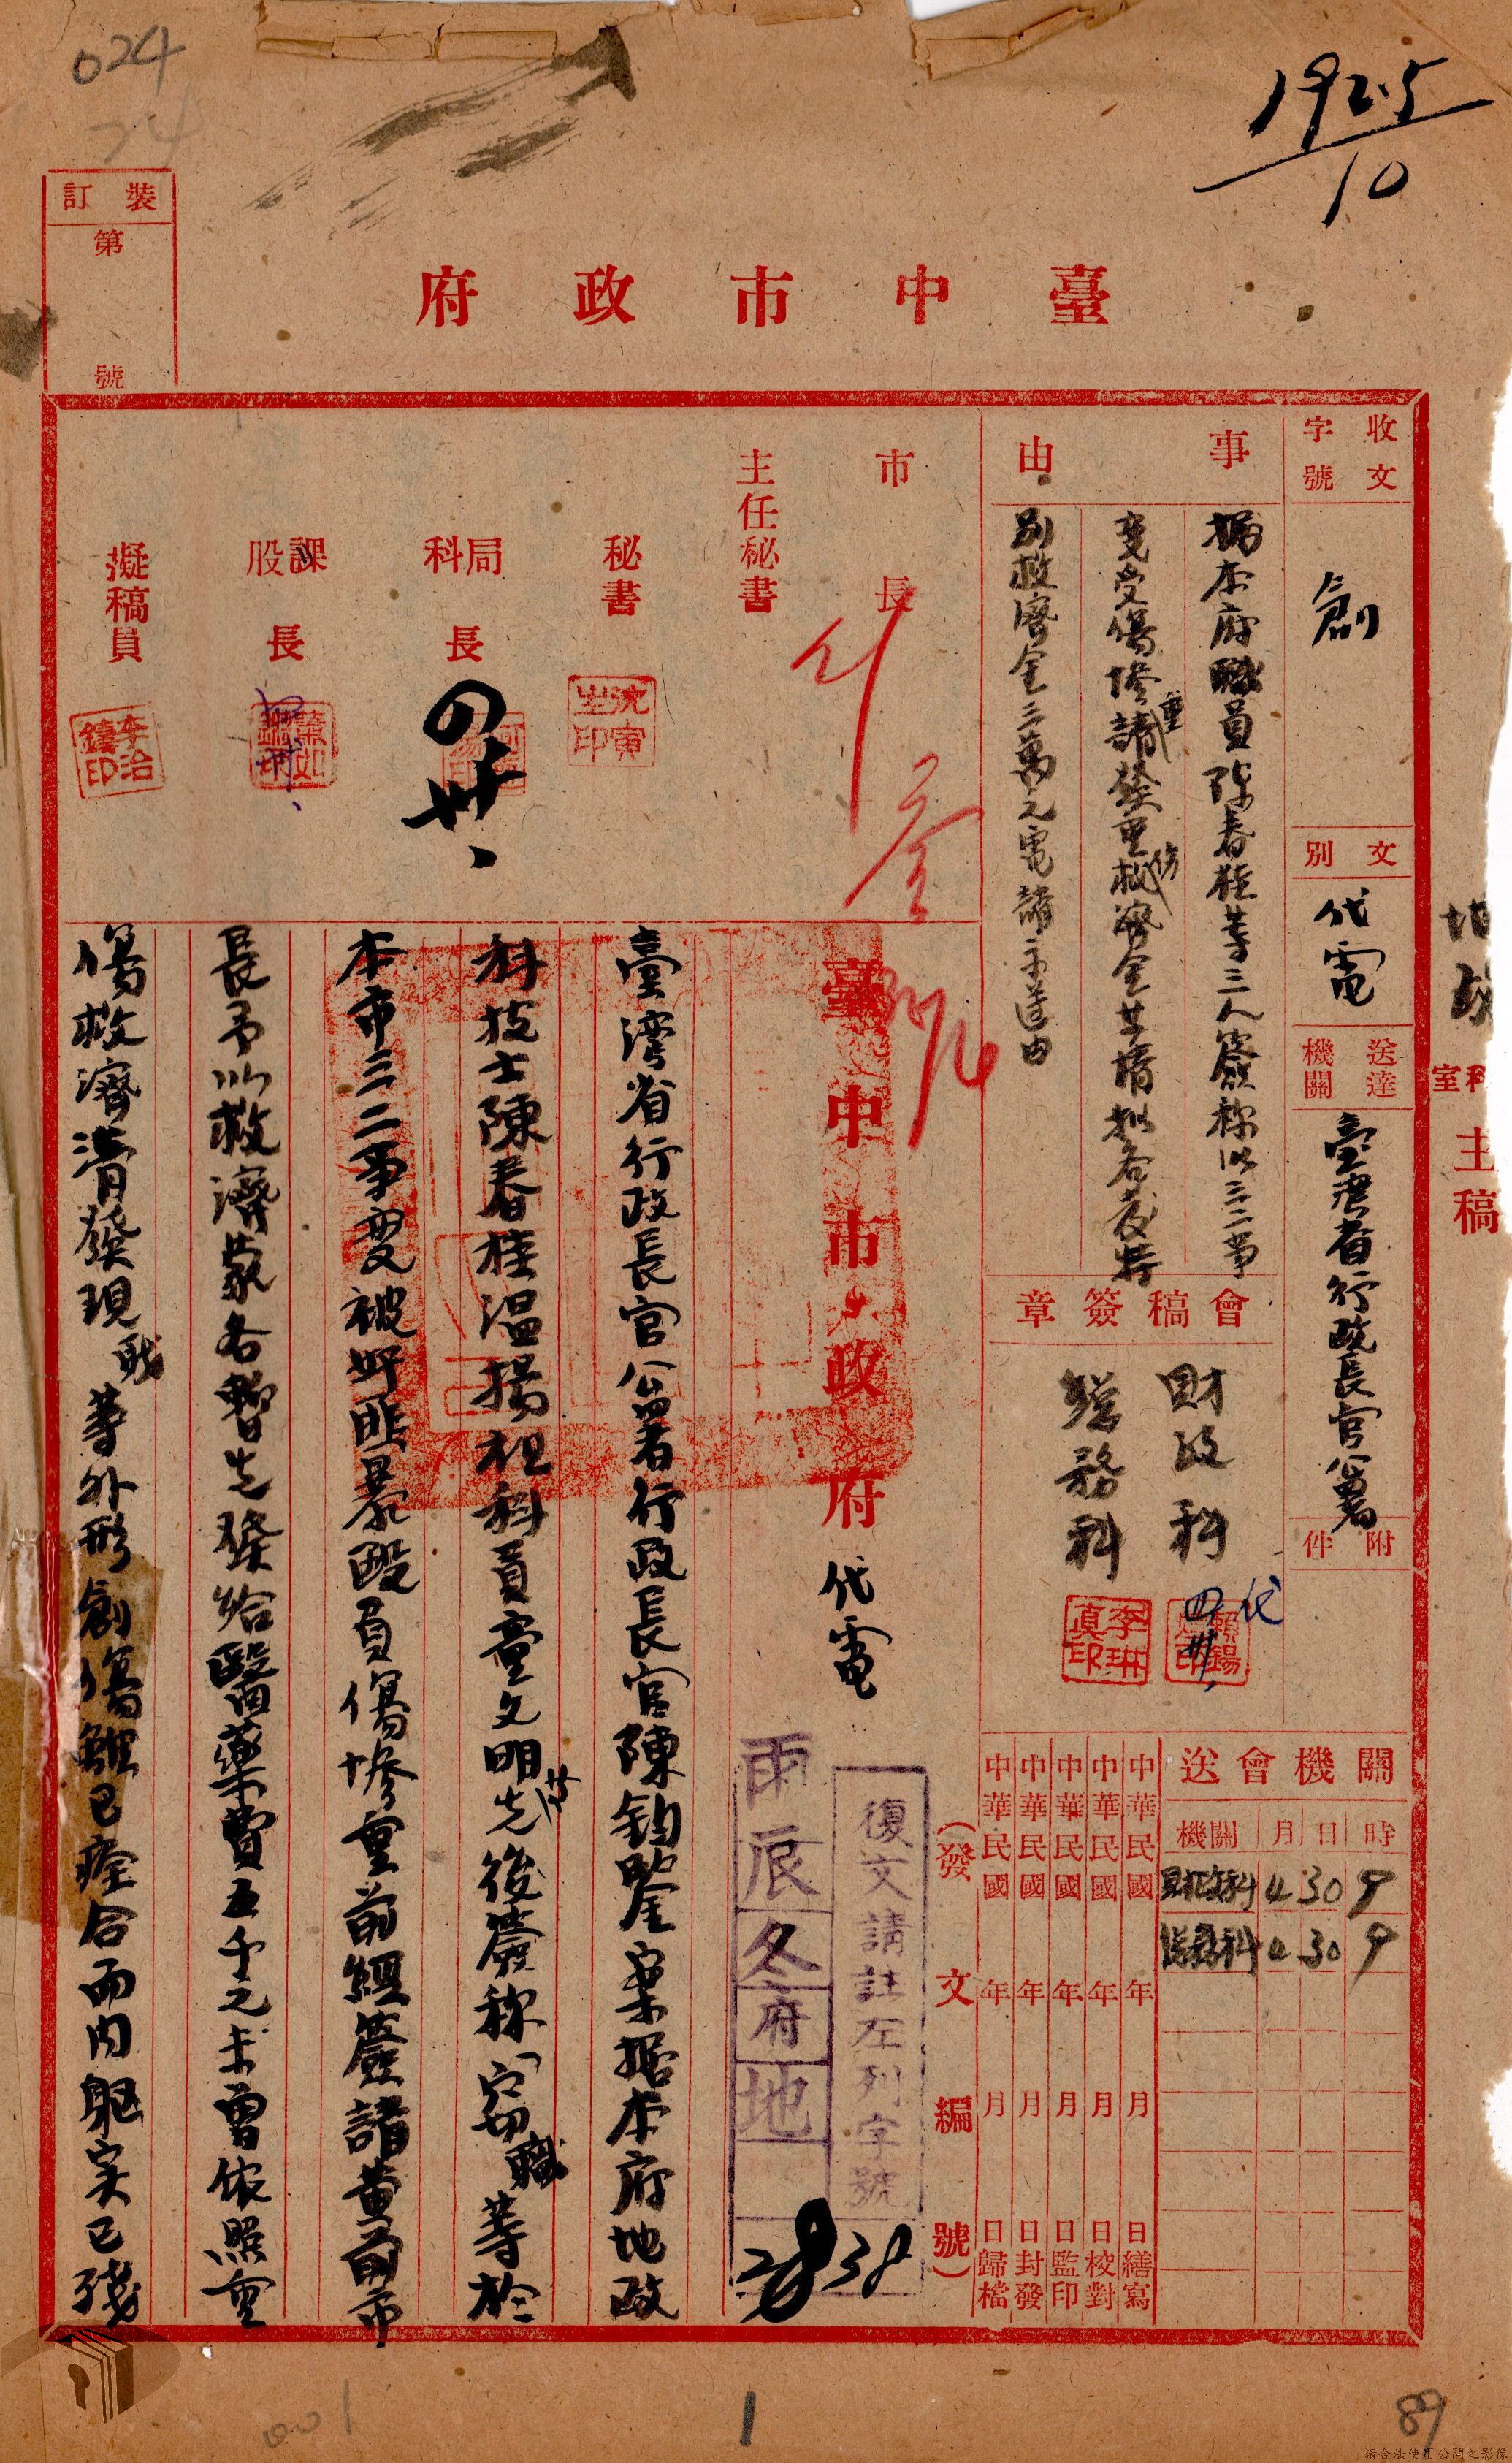 024
74
1925
10
裝訂
第 號
臺中市政府
地政科室主稿
收文字號
創
文別
代電
送達機關
臺灣省行政長官公署
附件
事由
據本府職員陳春桂等三人簽稱以三二事
變受傷慘重請發重傷救濟金等情擬各發特
別救濟金三萬元電請示遵由
會稿簽章
財政科
總務科
代
李琳真印
關機會送
機關 月 日 時
財政科 4 30 9
總務科 4 30 9
中華民國 年 月 日繕寫
中華民國 年 月 日校對
中華民國 年 月 日監印
中華民國 年 月 日封發
中華民國 年 月 日歸檔
(發文編號)
市長
主任秘書
秘書
沈寅之印
局科長
課股長
擬稿員
李治鑄印
臺中市政府代電
復文請註左列字號
雨辰冬府地
2838
臺灣省行政長官公署行政長官陳鈞鑒案據本府地政
科技士陳春桂溫揚祖科員童文明等先後簽稱「竊職等於
本市三二事變被奸匪暴毆負傷慘重前經簽請黃前市
長予以救濟蒙各暫先發給醫藥費五千元未曾依照重
傷救濟清發現職等外形創傷雖已痊合而內軀实已殘
001
1
89
請合法使用公開之影像